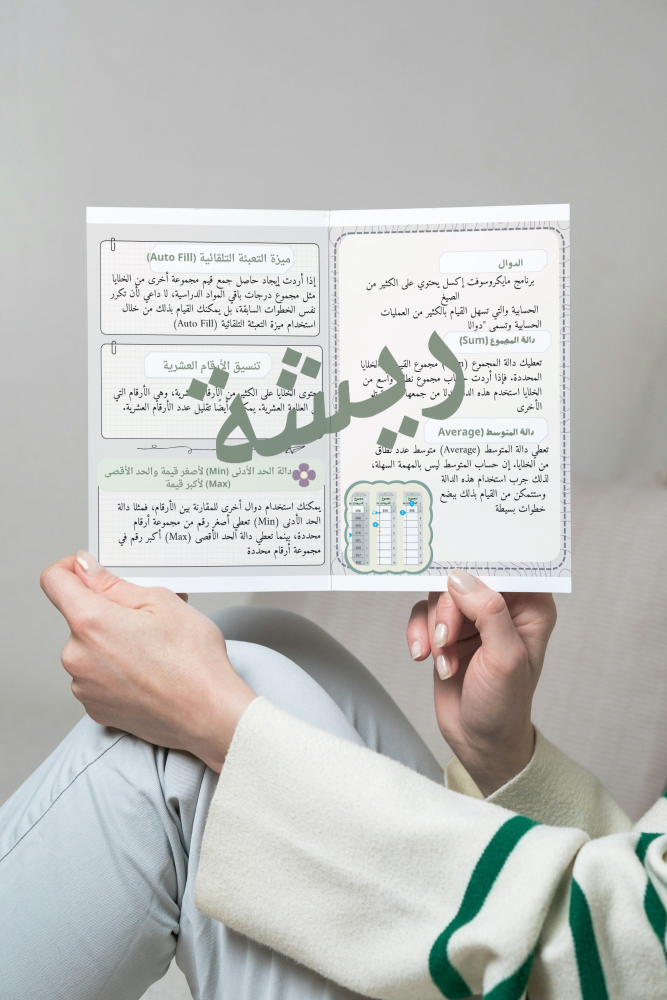 الدوال
برنامج مايكروسوفت إكسل يحتوي على الكثير من
الصيغ
الحسابية والتي تسهل القيام بالكثير من العمليات
الحسابية وتسمى "دوالا
دالة المجموع (Sum)
تعطيك دالة المجموع مجموع القيم الخلايا
المحددة. فإذا أردت حساب مجموع نطاق واسع من
الخلايا استخدم هذه الدالة بدلا من جمعها
الأخرى
دالة المتوسط (Average)
تعطي دالة المتوسط (Average) متوسط عدد نطاق
من الخلايا، إن حساب المتوسط ليس بالمهمة السهلة،
لذلك جرب استخدام هذه الدالة
وستتمكن من القيام بذلك ببضع
خطوات بسيطة
ميزة التعبئة التلقائية (Auto Fill)
إذا أردت إيجاد حاصل جمع قيم مجموعة أخرى من الخلايا
مثل مجموع درجات باقي المواد الدراسية، لا داعي لأن تكرر
نفس الخطوات السابقة، بل يمكنك القيام بذلك من خلال
استخدام ميزة التعبئة التلقائية (Auto Fill)
تنسيق الأرقام العشرية
تحتوى الخلايا على الكثير من الأرقام العشرية، وهي الأرقام التي
العلامة العشرية. يمكنك أيضا تقليل عدد الأرقام العشرية.
دالة الحد الأدنى (Min) لأصغر قيمة والحد الأقصى
(Max) لأكبر قيمة
يمكنك استخدام دوال أخرى للمقارنة بين الأرقام، فمثلا دالة
الحد الأدنى (Min) تعطي أصغر رقم من مجموعة أرقام
محددة، بينما تعطي دالة الحد الأقصى (Max) أكبر رقم في
مجموعة أرقام محددة
ريشة